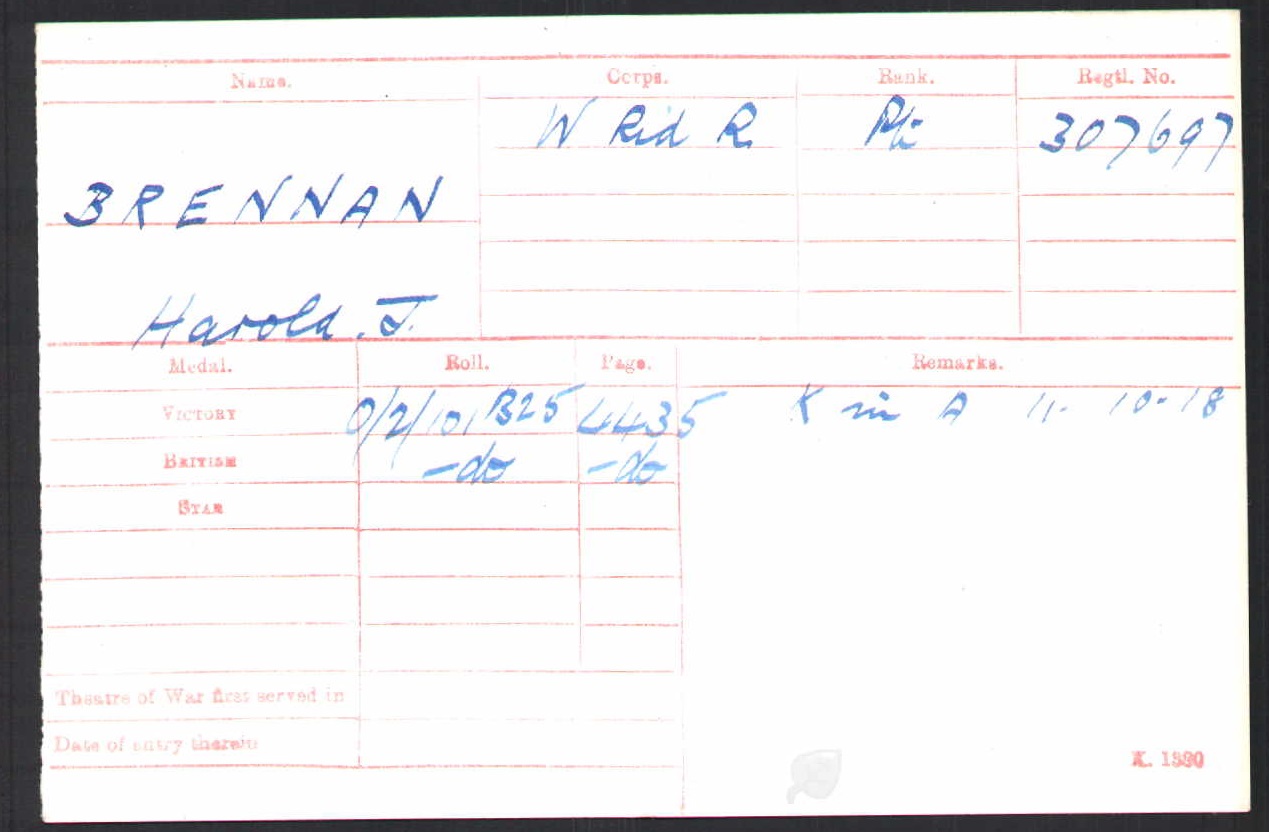 Name. Corps. Rank. Regtl. No.
W Rid R Pte 307697
BRENNAN
Harold. J.
Medal. Roll. Page. Remarks.
VICTORY 0/2/101B25 4435 K in A 11-10-18
BRITISH -do -do
STAR
Theatre of War first served in
Date of entry therein
K. 1380